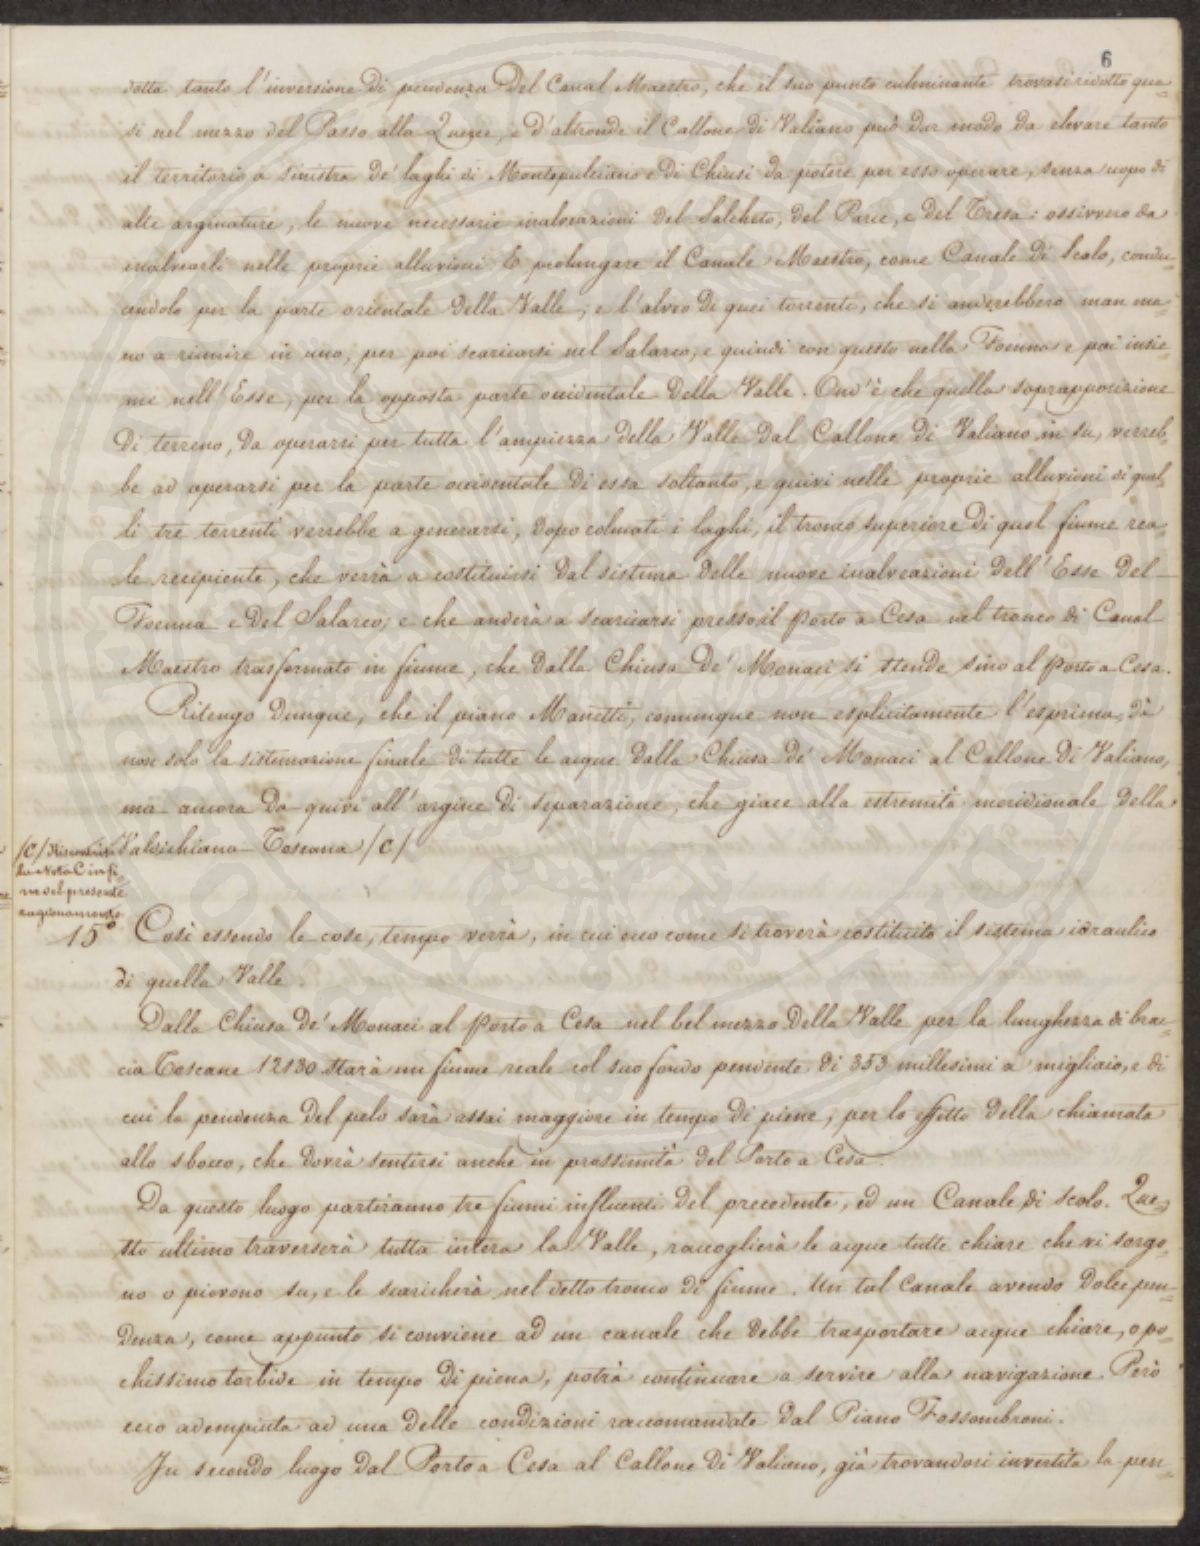 6
dotta tanto l'inversione di pendenza del Canal Maestro, che il suo punto culminante trovasi ridotto qua=
si nel mezzo del Passo alla Querce, e d'altronde il Callone di Valiano può dar modo da elevare tanto
il territorio a sinistra de' laghi di Montepulciano e di Chiusi da potere per esso operare, senza uopo di
alte arginature, le nuove necessarie inalveazioni del Salcheto, del Parce, e del Tresa: ossivvero da
inalvearli nelle proprie alluvioni E prolungare il Canale Maestro, come Canale di Scolo, condu=
cendolo per la parte orientale della Valle; e l'alveo di quei torrenti, che si anderebbero man ma
no a riunire in uno, per poi scaricarsi nel Salarco, e quindi con questo nella Foenna e poi insie=
me nell'Esse, per la opposta parte occidentale della Valle. Ond'è che quella soprapposizione
di terreno, da operarsi per tutta l'ampiezza della Valle dal Callone di Valiano in su, verreb=
be ad operarsi per la parte occidentale di essa soltanto, e quivi nelle proprie alluvioni di quel=
li tre torrenti verrebbe a generarsi, dopo colmati i laghi, il tronco superiore di quel fiume rea=
le recipiente, che verrà a costituirsi dal sistema delle nuove inalveazioni dell'Esse del
Foenna e del Salarco; e che anderà a scaricarsi presso il Porto a Cesa nel tronco di Canal
Maestro trasformato in fiume, che dalla Chiusa de' Monaci si stende sino al Porto a Cesa.
Ritengo dunque, che il piano Manetti, comunque non esplicitamente l'esprima, dà
non solo la sistemazione finale di tutte le acque dalla Chiusa de' Monaci al Callone di Valiano,
ma ancora da quivi all'argine di separazione, che giace alla estremità meridionale della
Valdichiana Toscana /C/
/C/ Riscontrisi
la Nota C in fi=
ne del presente
ragionamento
15° Così essendo le cose, tempo verrà, in cui ecco come si troverà costituito il sistema idraulico
di quella Valle.
Dalla Chiusa de' Monaci al Porto a Cesa nel bel mezzo della Valle per la lunghezza di brac=
cia Toscane 12130 starà un fiume reale col suo fondo pendente di 353 millesimi a migliaio, e di
cui la pendenza del pelo sarà assai maggiore in tempo di piene, per lo effetto della chiamata
allo sbocco, che dovrà sentirsi anche in prossimità del Porto a Cesa.
Da questo luogo partiranno tre fiumi influenti del precedente, ed un Canale di scolo. Que=
sto ultimo traverserà tutta intera la Valle, raccoglierà le acque tutte chiare che vi sorgo=
no o piovono su, e le scaricherà nel detto tronco di fiume. Un tal Canale avendo dolce pen=
denza, come appunto si conviene ad un canale che debbe trasportare acque chiare, o po=
chissimo torbide in tempo di piena, potrà continuare a servire alla navigazione. Però
ecco adempiuta ad una delle condizioni raccomandate dal Piano Fossombroni.
In secondo luogo dal Porto a Cesa al Callone di Valiano, già trovandosi invertita la pen=